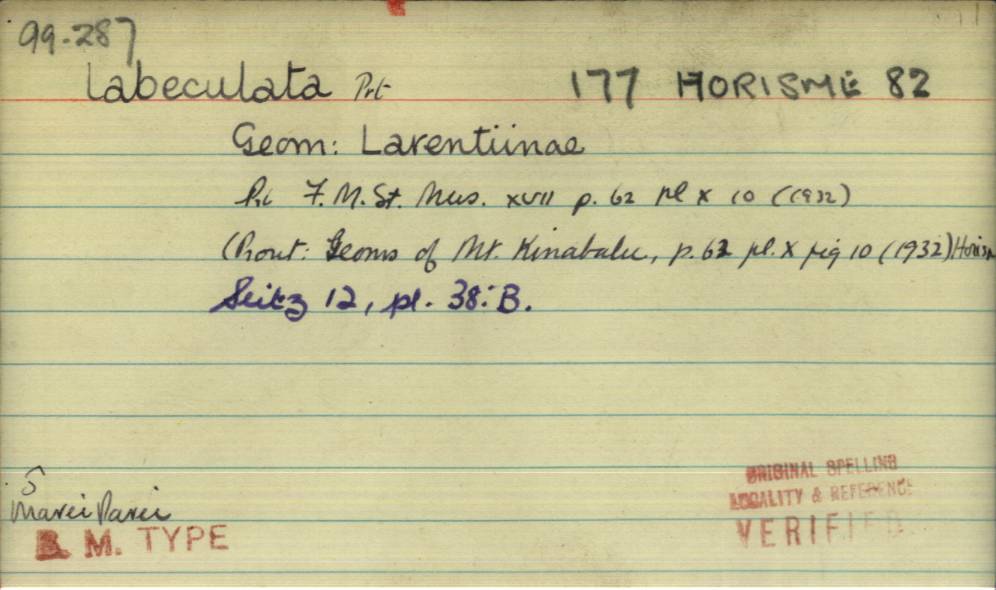 99.287
labeculata Prt 177 HORISME 82
Geom: Larentiinae
Prt F. M. St. Mus. XVII p. 62 pl X 10 (1932)
(Prout: Geoms of Mt. Kinabalu, p. 62 pl. X fig 10 (1932) Horism
Seitz 12, pl. 38: B.
ORIGINAL SPELLING
LOCALITY & REFERENCE
VERIFIED
5
Marei Parei
B. M. TYPE